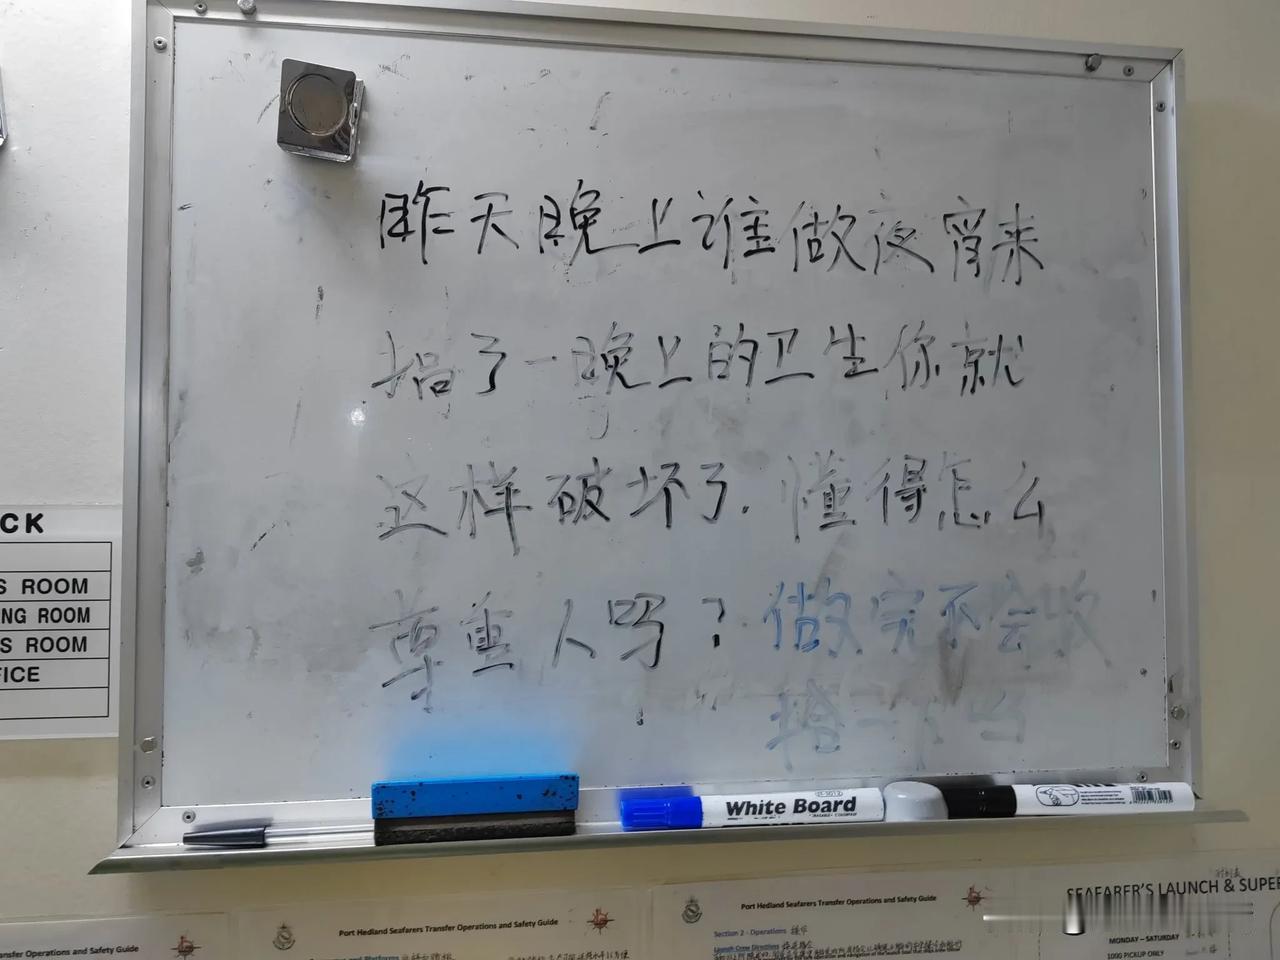 昨天晚上谁做夜宵来
搞了一晚上的卫生你就
这样破坏了.懂得怎么
尊重人吗？做完不会收
拾一下吗
CK
S ROOM
NG ROOM
S ROOM
FICE
White Board
nsfer Operations and Safety Guide
Port Hedland Seafarers Transfer Operations and Safety Guide
Port Hedland Seafarers Transfer Operations and Safety Guide
Section 2 - Operations 操作
Launch Crew Directions
SEAFARER'S LAUNCH & SUPER
MONDAY – SATURDAY
1000 PICKUP ONLY